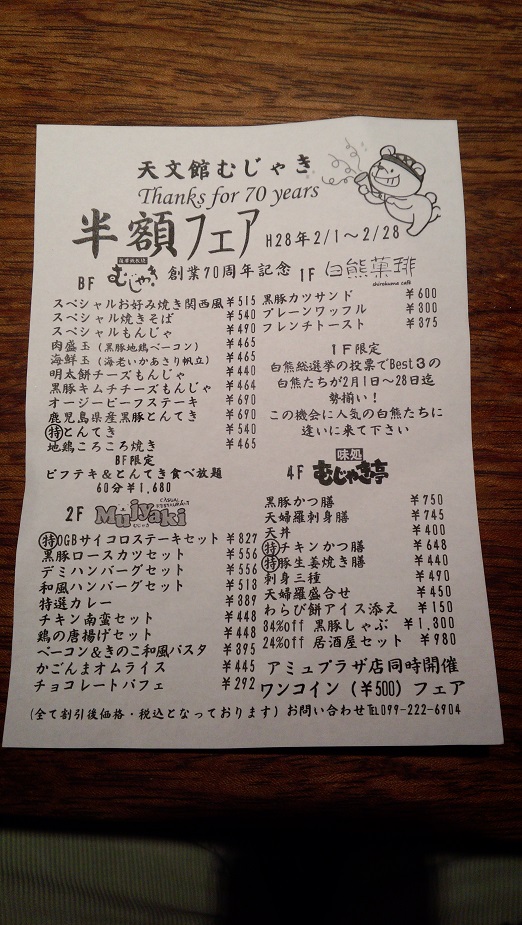 天文館むじゃき
Thanks for 70 years
半額フェア H28年2/1～2/28
創業70周年記念
BF 薩摩鉄板焼 むじゃき
スペシャルお好み焼き関西風 ¥515
スペシャル焼きそば ¥540
スペシャルもんじゃ ¥490
肉盛玉（黒豚地鶏ベーコン） ¥465
海鮮玉（海老いかあさり帆立） ¥465
明太餅チーズもんじゃ ¥440
黒豚キムチチーズもんじゃ ¥464
オージービーフステーキ ¥690
鹿児島県産黒豚とんてき ¥690
特とんてき ¥540
地鶏ころころ焼き ¥465
BF限定
ビフテキ＆とんてき食べ放題
60分¥1,680
1F 白熊菓琲
shirokuma café
黒豚カツサンド ¥600
プレーンワッフル ¥300
フレンチトースト ¥375
1F限定
白熊総選挙の投票でBest3の
白熊たちが2月1日～28日迄
勢揃い！
この機会に人気の白熊たちに
逢いに来て下さい
2F Mujyaki
特OGBサイコロステーキセット ¥827
黒豚ロースカツセット ¥556
デミハンバーグセット ¥556
和風ハンバーグセット ¥513
特選カレー ¥389
チキン南蛮セット ¥448
鶏の唐揚げセット ¥448
ベーコン＆きのこ和風パスタ ¥395
かごんまオムライス ¥445
チョコレートパフェ ¥292
4F 味処 むじゃき亭
黒豚かつ膳 ¥750
天婦羅刺身膳 ¥745
天丼 ¥400
特チキンかつ膳 ¥648
特豚生姜焼き膳 ¥440
刺身三種 ¥490
天婦羅盛合せ ¥450
わらび餅アイス添え ¥150
34%off 黒豚しゃぶ ¥1,800
24%off 居酒屋セット ¥980
アミュプラザ店同時開催
ワンコイン（¥500）フェア
（全て割引後価格・税込となっております）お問い合わせ℡099-222-6904